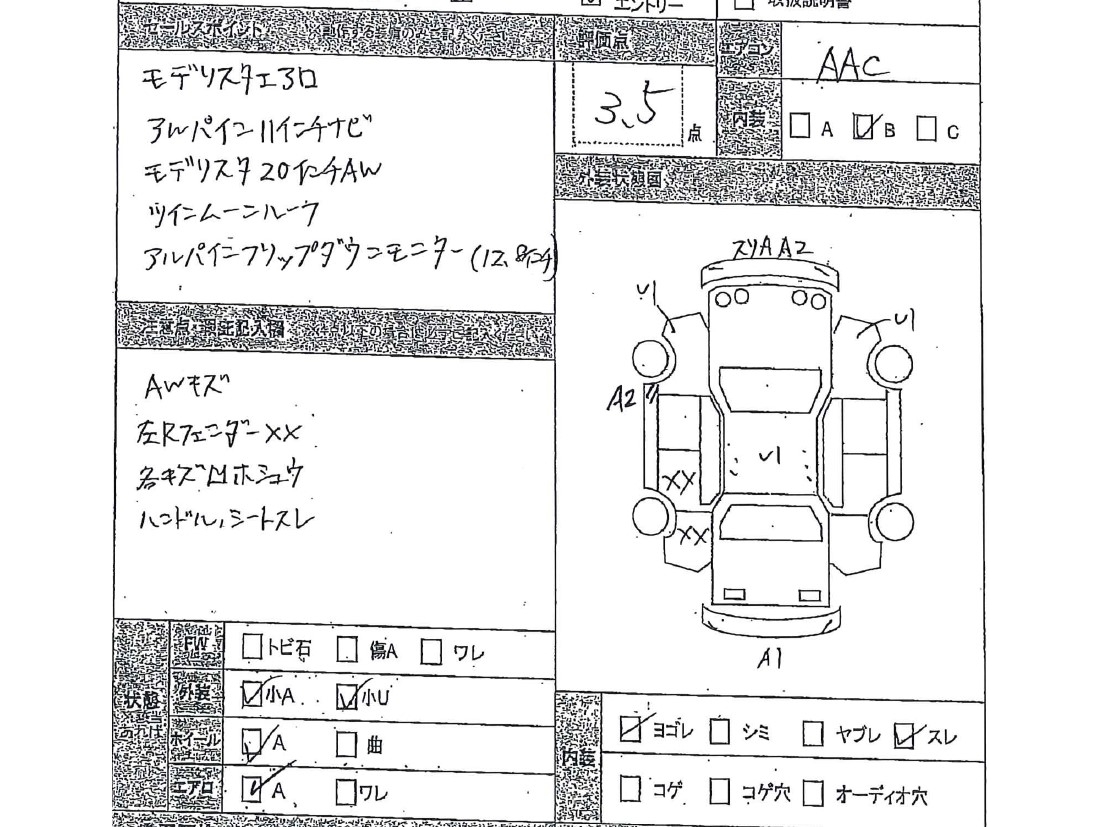 エントリー
取扱説明書
セールスポイント
評価点
エアコン
AAC
モデリスタエアロ
3.5
点
内装
A
B
C
アルパイン11インチナビ
モデリスタ20インチAW
外装状態図
ツインムーンルーフ
アルパインフリップダウンモニター(12.8インチ)
スリAA2
U1
U1
A2
U1
XX
XX
A1
AWキズ
左RフェンダーXX
各キズ凹ホシュウ
ハンドル,シートスレ
状態
あれば
FW
トビ石
傷A
ワレ
外装
小A
小U
ホイール
A
曲
エアロ
A
ワレ
内装
ヨゴレ
シミ
ヤブレ
スレ
コゲ
コゲ穴
オーディオ穴